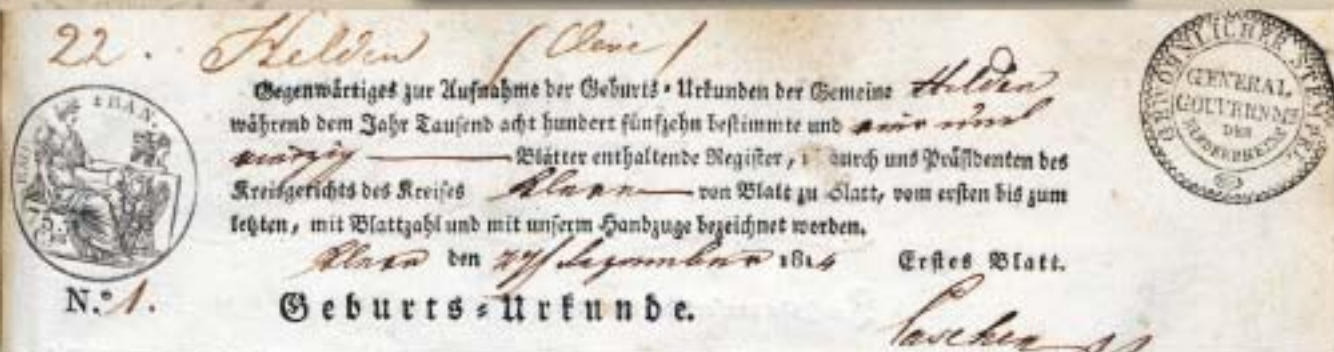 22. Helden
Gegenwärtiges zur Aufnahme der Geburts-Urkunden der Gemeine Helden
während dem Jahr Tausend acht hundert fünfzehn bestimmte und ein und
Blätter enthaltende Register, durch uns Präsidenten des
Kreisgerichts des Kreises Kleve von Blatt zu Blatt, vom ersten bis zum
letzten, mit Blattzahl und mit unserm Handzuge bezeichnet worden.
Kleve den 27 Dezember 1814 Erstes Blatt.
N.º 1. Geburts-Urkunde.
GEWÖHNLICHER STEMPEL
GENERAL
GOUVERNME
DES
NIEDERRHEINS